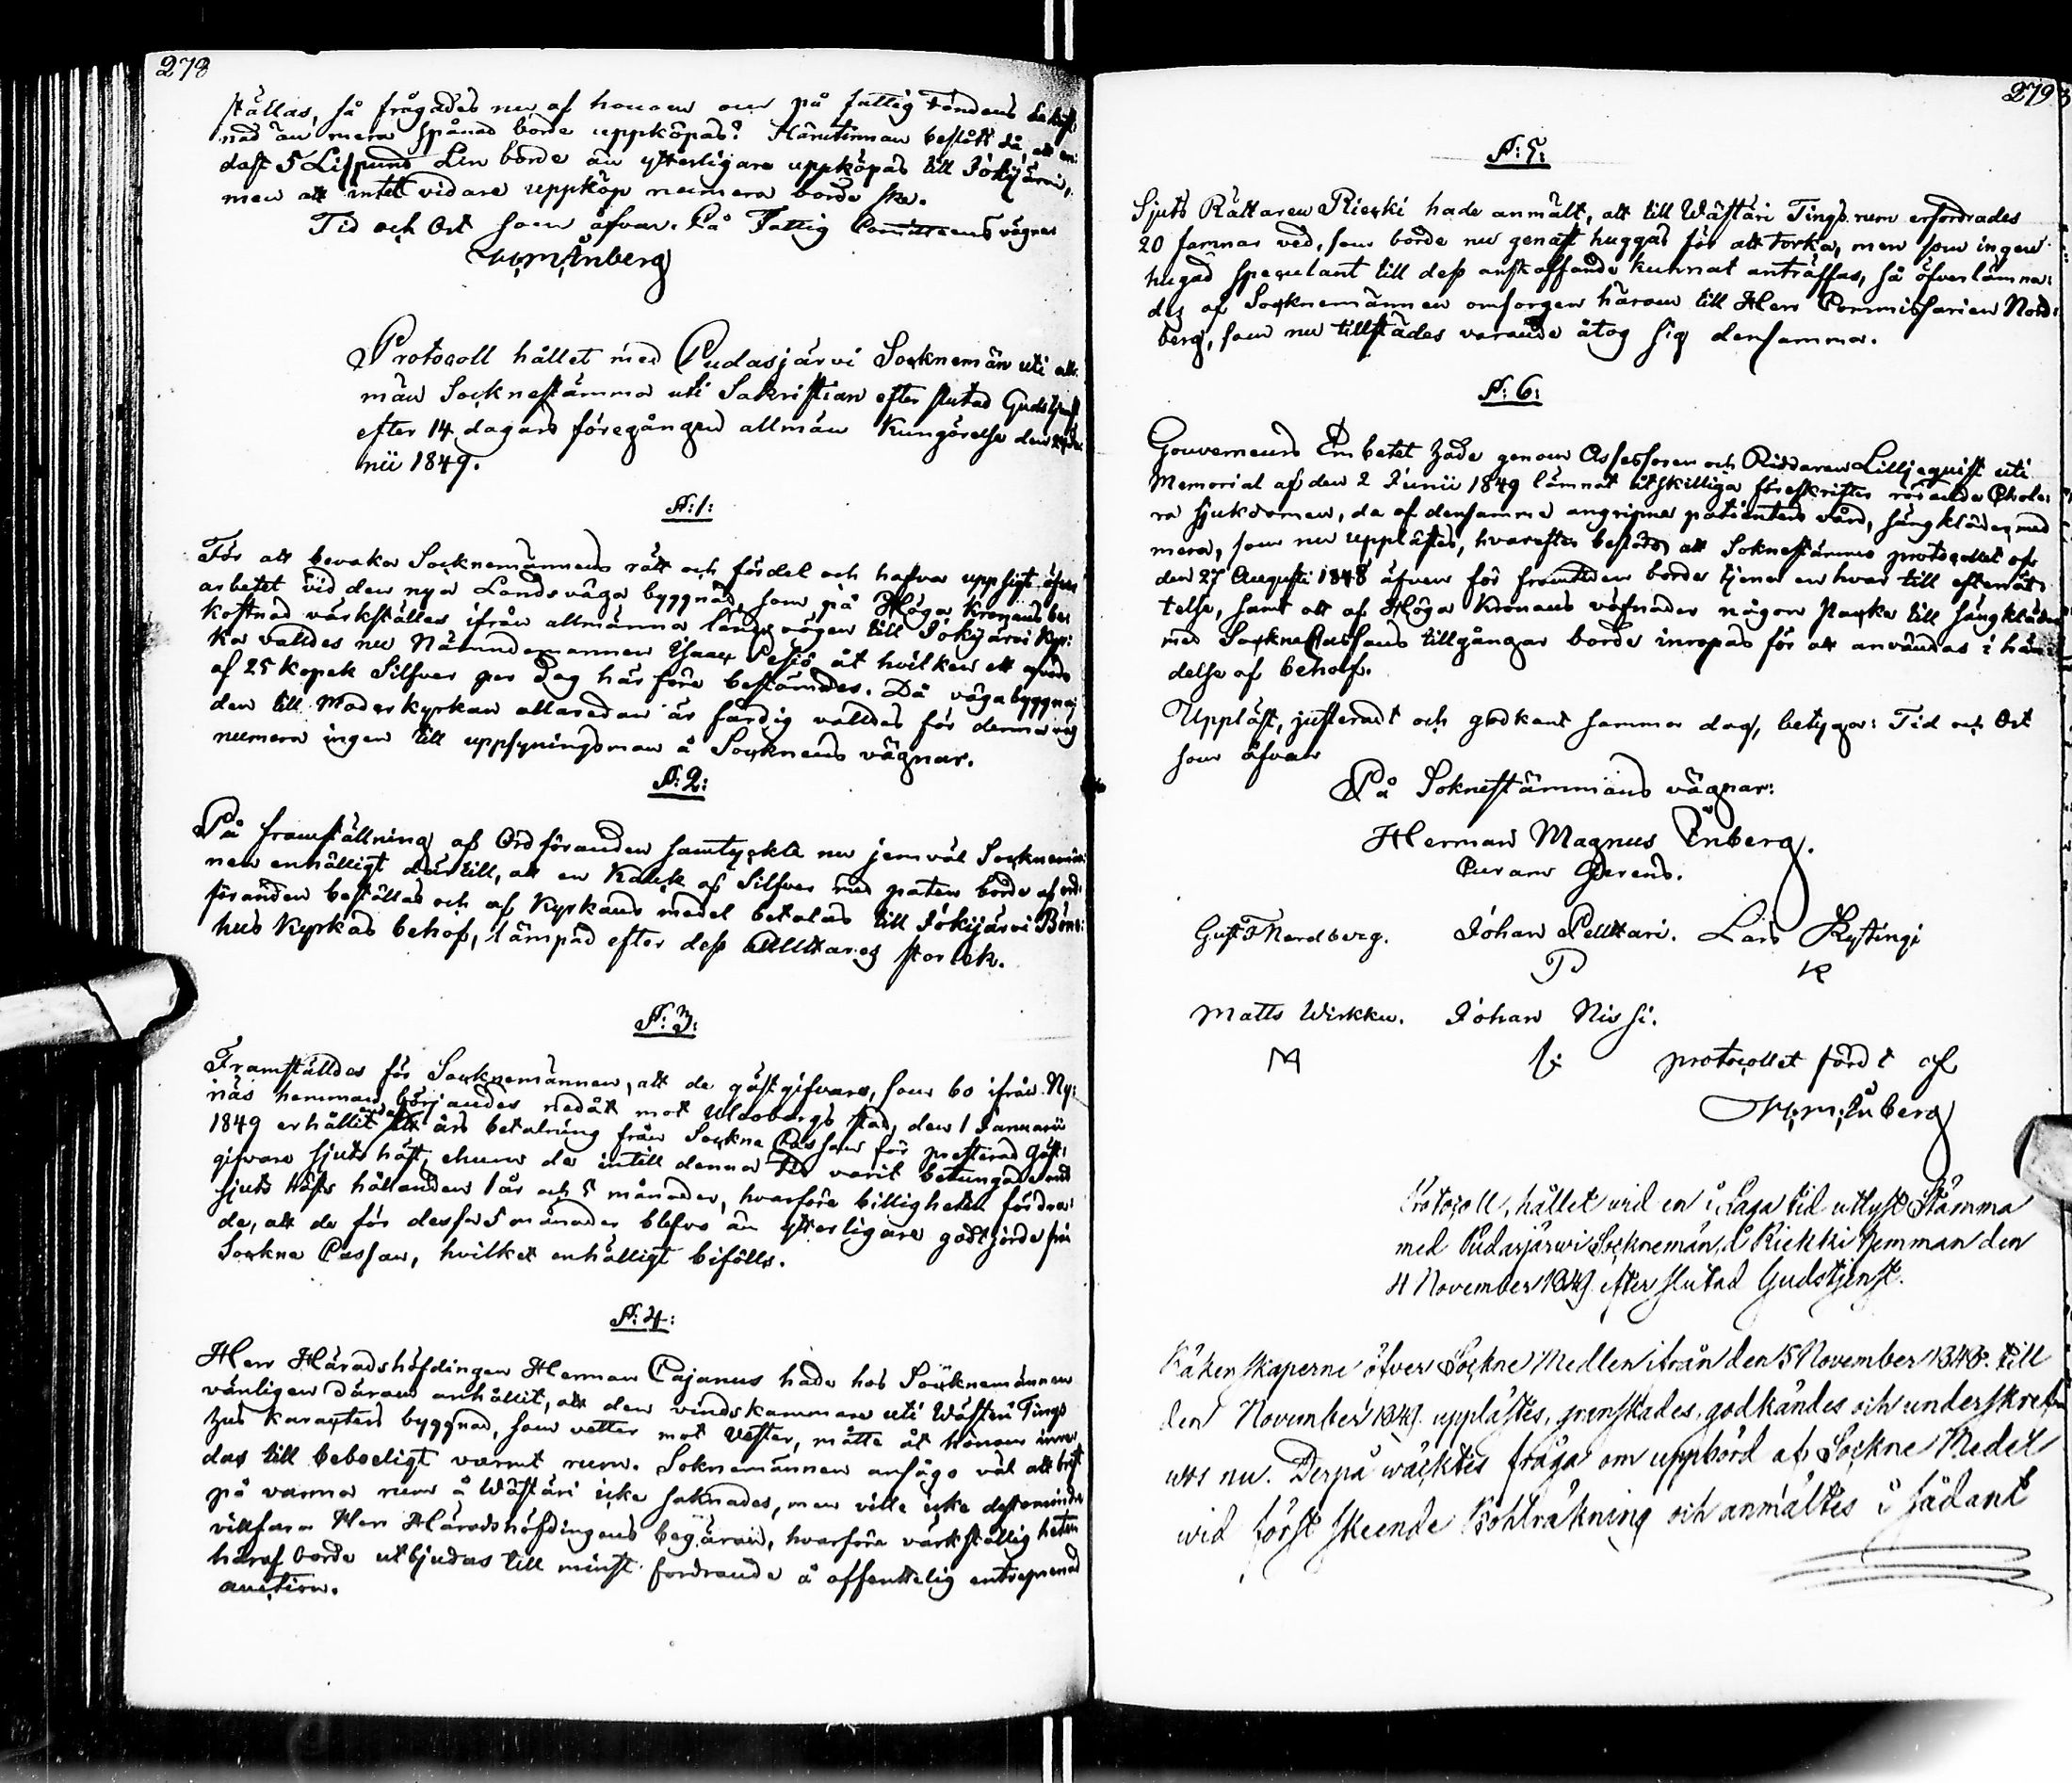 278
ställas, så frågades nu af honom om på fattig fondens bekost:
nad än mera spånad borde uppköpas? Härutinnan beslöts då, att en:
dast 5 Lispund Lin borde än ytterligare uppköpas till Jokijärvi,
men att intet vidare uppköp numera borde ske.
Tid och Ort som åfvan. På Fattig Committeens vägnar
H. M. Enberg
Protocoll hållet med Pudasjärvi Socknemän uti all:
män Socknestämma uti Sakristian efter slutad Gudstjenst
efter 14 dagars föregången allmän Kungörelse den
nii 1849.
§:1:
För att bevaka Socknemännens rätt och fördel och hafva uppsigt öfver
arbetet vid den nya Landsväga byggnad, som på Höga Kronans be:
kostnad värkställes ifrån allmänna landsvägen till Jokijärvi Kyr:
ka valldes nu Nämndemannen Isaac åt hvilken ett arfvode
af 25 kopek Silfver per Dag härföre bestämdes. Då vägabyggna:
den till Moderkyrkan allaredan är färdig valldes för denna väg
numera ingen till uppsyningsman å Socknens vägnar.
§:2:
På framställning af Ordföranden samtyckte nu jemväl Socknemän:
nen enhälligt därtill, att en Kalk af Silfver med paten borde af ord:
föranden beställas och af Kyrkans medel betalas till Jokijärvi Böne:
hus Kyrkas behof, lämpad efter dess Alltares storlek.
§:3:
Framställdes för Socknemännen, att de gästgifvare, som bo ifrån Ny:
näs hemman, börjandes nedåt mot Uleåborgs stad, den 1 Januarii
1849 erhållit ett års betalning från Sockne Cassan för presterad Gäst:
gifvare skjuts häst, ehuru de intill denna tid varit betungade med
skjuts hästs hållanden 1 år och 5 månader, hvarföre billigheten fördra:
de, att de för dessa 5 månader blefvo än ytterligare godtgjorde från
Sockne Cassan, hvilket enhälligt bifölls.
§:4:
Herr Häradshöfdingen Herman Cajanus hade hos Socknemännen
vänligen därom anhållit, att den vindskammare uti Wästeri Tings
hus karakters byggnad, som vetter mot Vester, måtte åt honom inre:
das till beboeligt varmt rum. Soknemännen ansågo väl att brist
på varma rum å Wästäri icke saknades, men ville icke destomindre
villfara Herr Häradshöfdingens begäran, hvarföre värkställigheten
häraf borde utbjudas till minst fordrande å offentelig entreprenad
auction.
279
§:5:
Skjuts Rättaren Riekki hade anmält, att till Wästäri Tings rum erfordrades
20 famnar ved, som borde nu genast huggas för att torka, men som ingen
hugad speculant till dess anskaffande kunnat anträffas, så öfverlämna:
des af Socknemännen omsorgen härom till Herr Commissarien Nord:
berg, som nu tillstädes varande åtog sig densamma.
§:6:
Gouverneurs Embetet hade genom Assessoren och Riddaren Lilljeqvist uti
Memorial af den 2 Junii 1849 lämnat åtskilliga föreskrifter rörande Chole:
ra sjukdomen, de af densamma angripna patienters vård, sängkläder, med
mera, som nu upplästes, hvarefter beslöts att Soknestämmo protocollet af
den 27 Augusti 1848 äfven för framtiden borde tjena en hvar till efterrät:
telse, samt att af Höga Kronans vöfnader någon stacka till sängkläder
med Sockne Cassans tillgångar borde inropas för att användas i hän:
delse af behof.
Uppläst, justeradt och godkänt samma dag, betyga: Tid och Ort
som åfvan
På Soknestämmans vägnar:
Herman Magnus Enberg.
Curam Gerens.
Gust F Nordberg. Johan Pellttari. Lars Kystingi
P K
Matts Wirkku. Johan Nissi.
M
protocollet fördt af
H. M. Enberg
Protocoll, hållet wid en i Laga tid utlyst Stämma
med Pudasjärwi Socknemän, å Riekki hemman den
4 November 1849 efter slutad Gudstjenst.
Räkenskaperne öfver Sockne Medlen ifrån den 5 November 1848. till
den November 1849. upplästes, granskades, godkändes och underskref:
wos nu. Derpå wäcktes fråga om uppbörd af Sockne Medel
wid först skeende Bohlräkning och anmältes i sådant